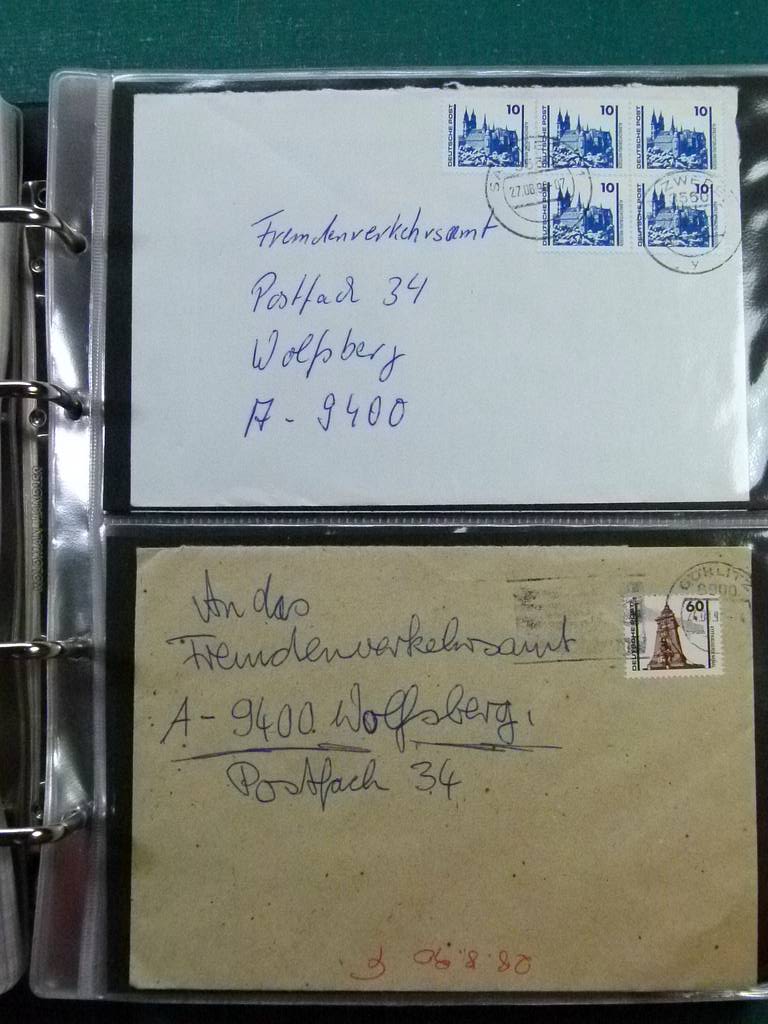 DEUTSCHE POST 10
DEUTSCHE POST 10
DEUTSCHE POST 10
DEUTSCHE POST 10
DEUTSCHE POST 10
Fremdenverkehrsamt
Postfach 34
Wolfsberg
A - 9400
GÖRLITZ
DEUTSCHE POST 60
An das
Fremdenverkehrsamt
A - 9400 Wolfsberg,
Postfach 34
28.8.90